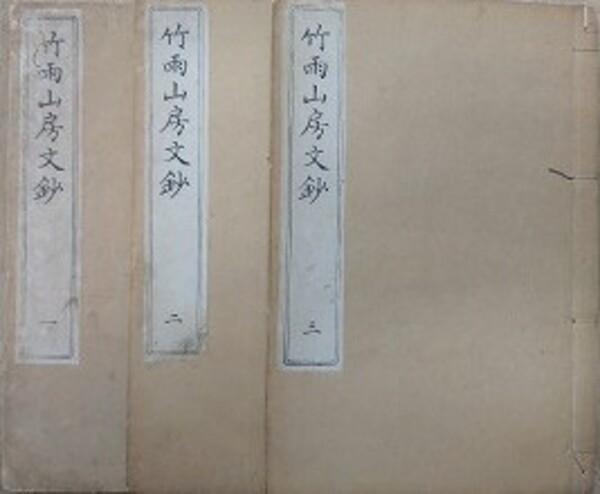 竹雨山房文鈔
一
竹雨山房文鈔
二
竹雨山房文鈔
三